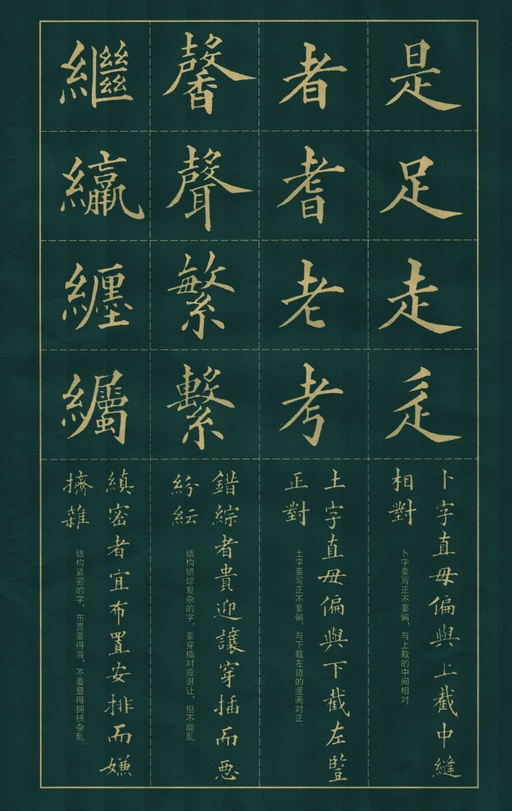 是
足
走
辵
卜字直毋偏與上截中縫
相對
卜字要写正不要偏，与上截的中间相对
者
耆
老
考
土字直毋偏與下截左豎
正對
土字要写正不要偏，与下截左边的竖画对正。
馨
聲
繁
繫
錯綜者貴迎讓穿插而惡
紛紜
结构错综复杂的字，要穿插对应退让，但不能乱。
繼
纏
縝密者宜布置安排而嫌
擠雜
结构紧密的字，布置要得当，不要显得拥挤杂乱。